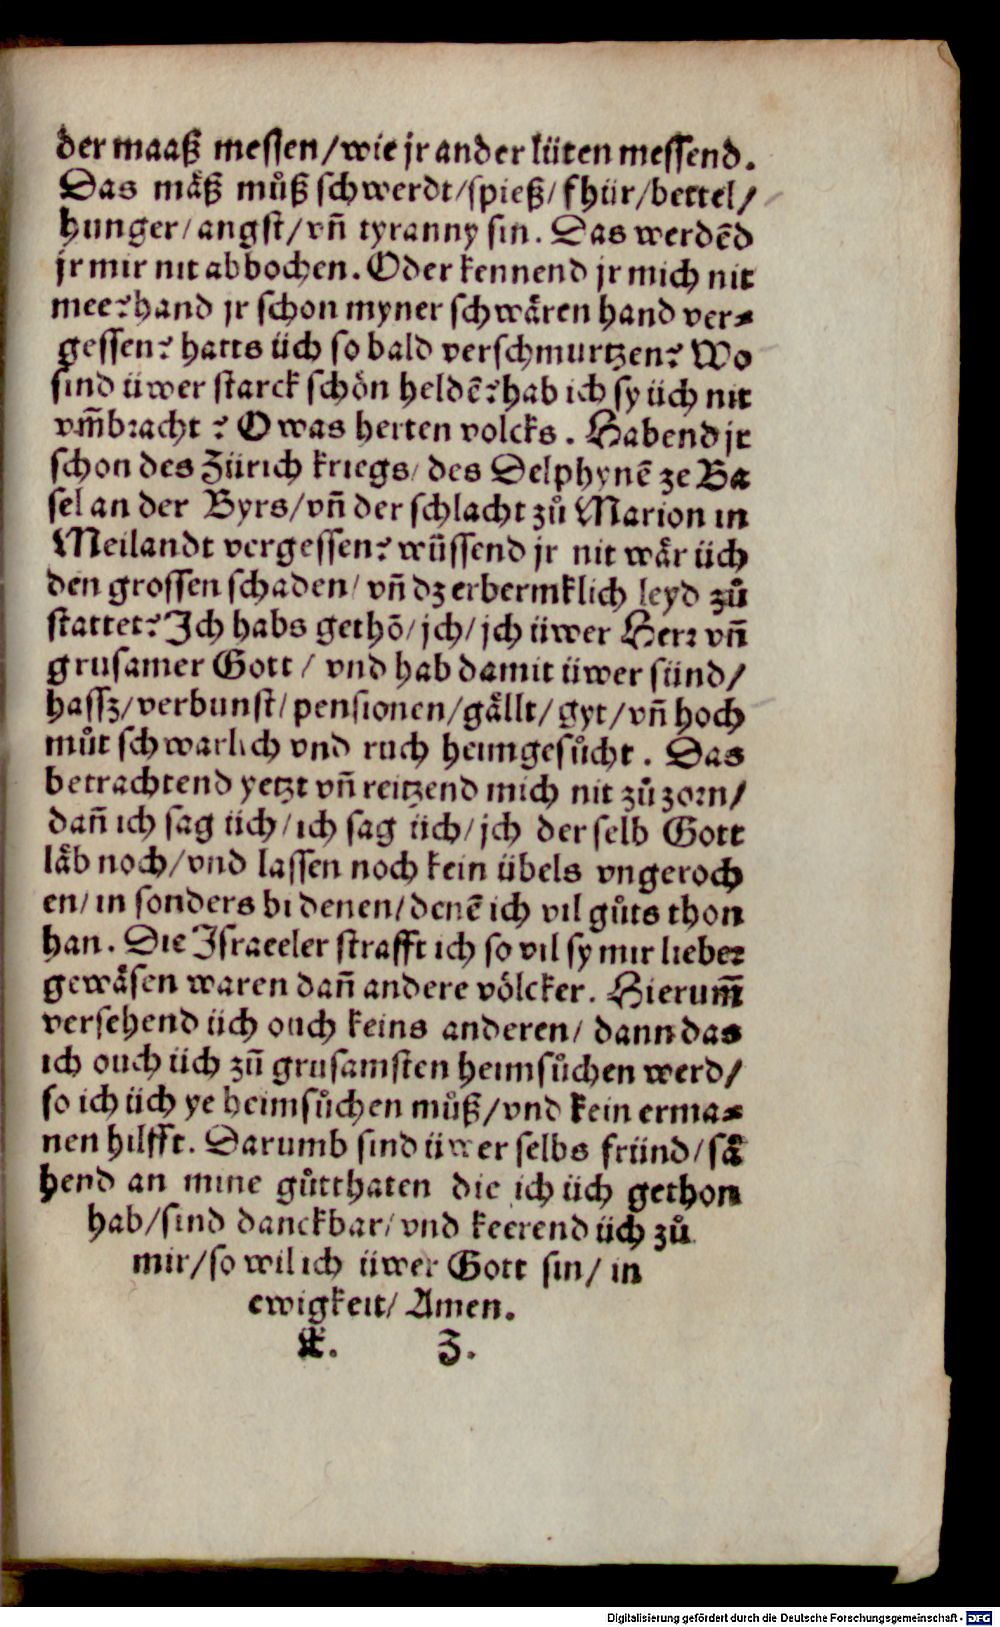 der maaß messen/wie jr ander lüten messend.
Das mäß můß schwerdt/spieß/fhür/bettel/
hunger/angst/vñ tyranny sin. Das werdēd
jr mir nit abbochen. Oder kennend jr mich nit
mee? hand jr schon myner schwären hand ver⸗
gessen? hatts üch so bald verschmurtzen? Wo
sind üwer starck schön heldē? hab ich sy üch nit
vm̄bracht? O was herten volcks. Habend jr
schon des Zürich kriegs/des Delphynē ze Ba
sel an der Byrs/vñ der schlacht zů Marion in
Meilandt vergessen? wüssend jr nit wär üch
den grossen schaden/vñ dz erbermklich leyd zů
stattet? Ich habs gethō/jch/jch üwer Herr vñ
grusamer Gott/vnd hab damit üwer sünd/
hassz/verbunst/pensionen/gällt/gyt/vñ hoch
můt schwarlich vnd ruch heimgesůcht. Das
betrachtend yetzt vñ reitzend mich nit zů zorn/
dañ ich sag üch/ich sag üch/jch der selb Gott
läb noch/vnd lassen noch kein übels vngeroch
en/in sonders bi denen/denē ich vil gůts thon
han. Die Israeeler strafft ich so vil sy mir lieber
gewäsen waren dañ andere völcker. Hierum̄
versehend üch ouch keins anderen/dann das
ich ouch üch zũ grusamsten heimsůchen werd/
so ich üch ye heimsůchen můß/vnd kein erma⸗
nen hilfft. Darumb sind üwer selbs fründ/sä
hend an mine gůtthaten die ich üch gethon
hab/sind danckbar/vnd keerend üch zů
mir/so wil ich üwer Gott sin/in
ewigkeit/Amen.
Z.
Digitalisierung gefördert durch die Deutsche Forschungsgemeinschaft - DFG